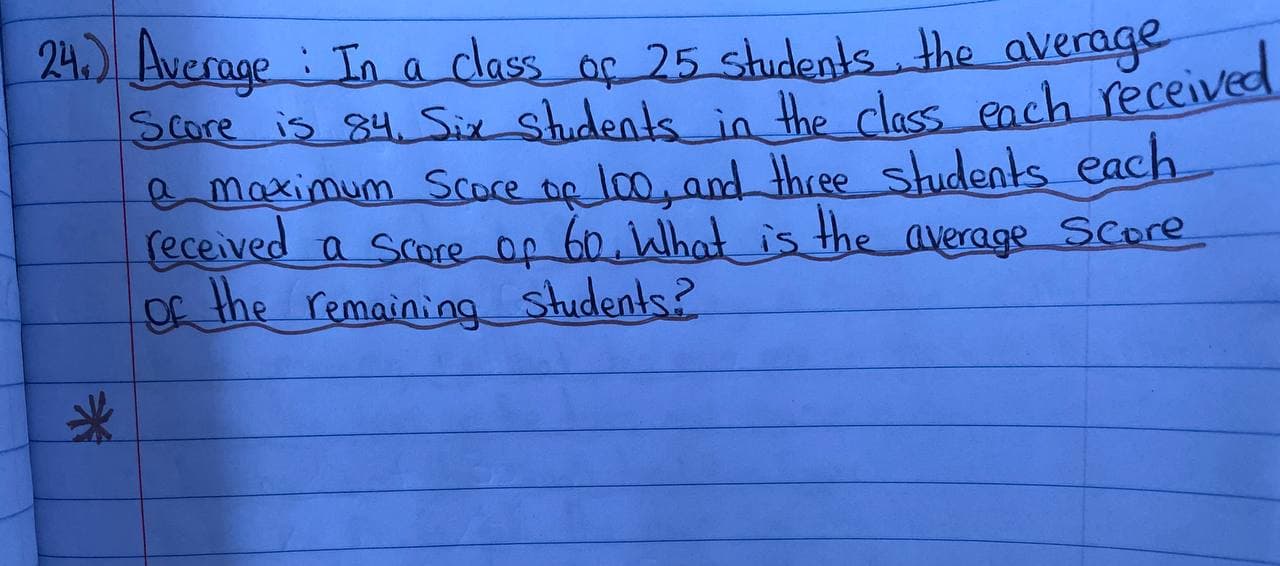 24.) Average : In a class of 25 students, the average
Score is 84. Six Students in the class each received
a maximum Score of 100, and three students each
received a Score of 60. What is the average Score
of the remaining Students?
*